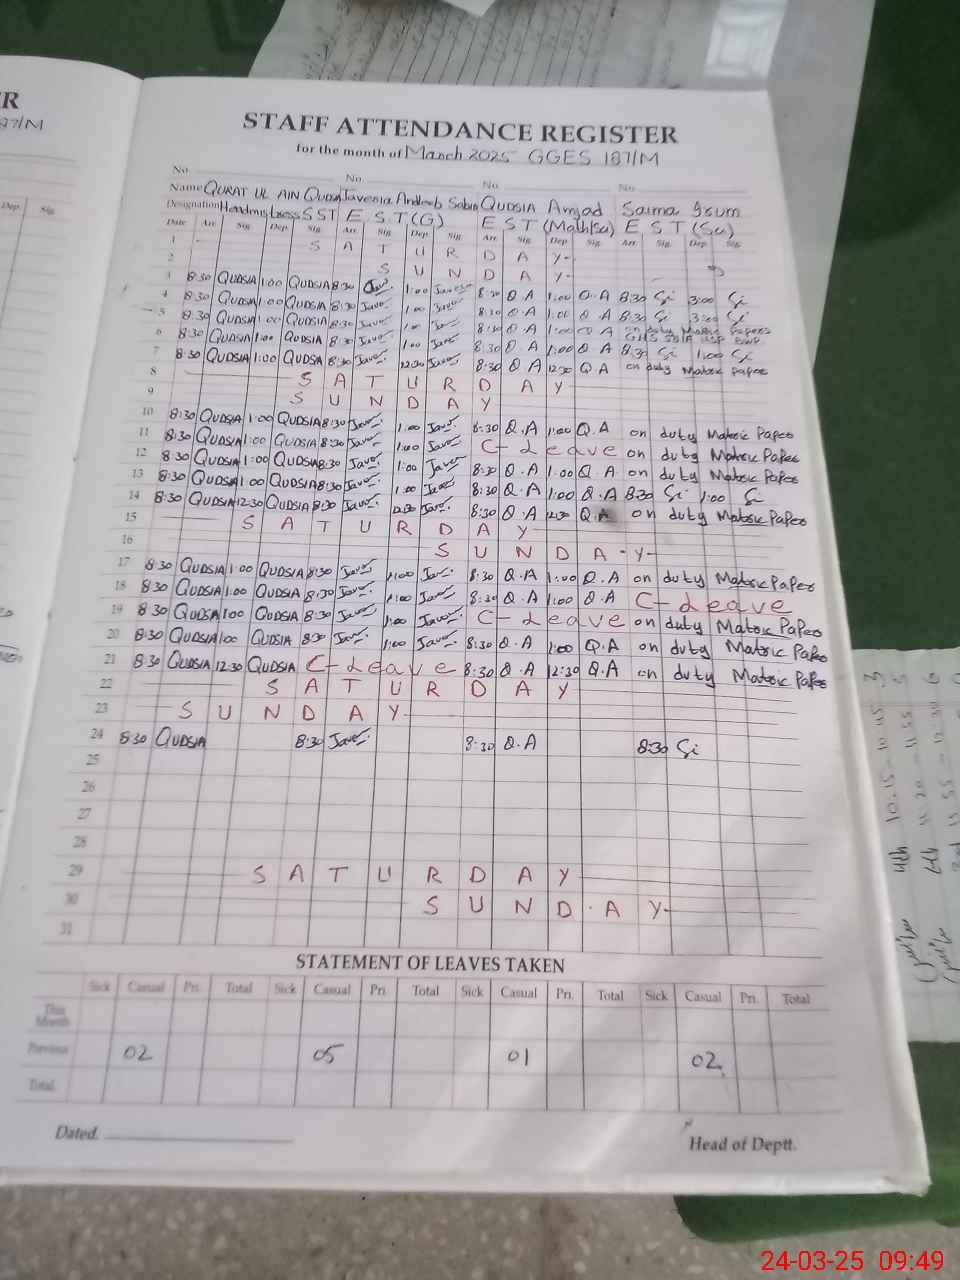 STAFF ATTENDANCE REGISTER
for the month of March 2025 GGES 187/M
No. No. No. No.
Name QURAT UL AIN Javeria Andleeb QUDSIA Amjad Saima
Designation Headmistress SST E S T (G) E S T (Math/Sci) E S T (Sci)
Date Arr Sig Dep. Sig Arr Sig Dep. Sig Arr Sig Dep. Sig Arr Sig Dep. Sig
1 S A T U R D A Y
2 S U N D A Y
3 8:30 QUDSIA 1:00 QUDSIA 8:30 Jav 1:00 Jav 8:30 Q.A 1:00 Q.A 8:30 Si 3:00 Si
4 8:30 QUDSIA 1:00 QUDSIA 8:30 Jav 1:00 Jav 8:30 Q.A 1:00 Q.A 8:30 Si 3:00 Si
5 8:30 QUDSIA 1:00 QUDSIA 8:30 Jav 1:00 Jav 8:30 Q.A 1:00 Q.A on duty Matric Papers
6 8:30 QUDSIA 1:00 QUDSIA 8:30 Jav 1:00 Jav 8:30 Q.A 1:00 Q.A 8:30 Si 1:00 Si
7 8:30 QUDSIA 1:00 QUDSIA 8:30 Jav 12:30 Jav 8:30 Q.A 12:30 Q.A on duty Matric Paper
8 S A T U R D A Y
9 S U N D A Y
10 8:30 QUDSIA 1:00 QUDSIA 8:30 Jav 1:00 Jav 8:30 Q.A 1:00 Q.A on duty Matric Paper
11 8:30 QUDSIA 1:00 QUDSIA 8:30 Jav 1:00 Jav C-Leave on duty Matric Paper
12 8:30 QUDSIA 1:00 QUDSIA 8:30 Jav 1:00 Jav 8:30 Q.A 1:00 Q.A on duty Matric Paper
13 8:30 QUDSIA 1:00 QUDSIA 8:30 Jav 1:00 Jav 8:30 Q.A 1:00 Q.A 8:30 Si 1:00 Si
14 8:30 QUDSIA 12:30 QUDSIA 8:30 Jav 12:30 Jav 8:30 Q.A 12:30 Q.A on duty Matric Paper
15 S A T U R D A Y
16 S U N D A Y
17 8:30 QUDSIA 1:00 QUDSIA 8:30 Jav 1:00 Jav 8:30 Q.A 1:00 Q.A on duty Matric Paper
18 8:30 QUDSIA 1:00 QUDSIA 8:30 Jav 1:00 Jav 8:30 Q.A 1:00 Q.A C-Leave
19 8:30 QUDSIA 1:00 QUDSIA 8:30 Jav 1:00 Jav C-Leave on duty Matric Paper
20 8:30 QUDSIA 1:00 QUDSIA 8:30 Jav 1:00 Jav 8:30 Q.A 1:00 Q.A on duty Matric Paper
21 8:30 QUDSIA 12:30 QUDSIA C-Leave 8:30 Q.A 12:30 Q.A on duty Matric Paper
22 S A T U R D A Y
23 S U N D A Y
24 8:30 QUDSIA 8:30 Jav 8:30 Q.A 8:30 Si
25
26
27
28
29 S A T U R D A Y
30 S U N D A Y
31
STATEMENT OF LEAVES TAKEN
Sick Casual Pri. Total Sick Casual Pri. Total Sick Casual Pri. Total Sick Casual Pri. Total
This Month
Previous 02 05 01 02
Total
Dated. Head of Deptt.
24-03-25 09:49